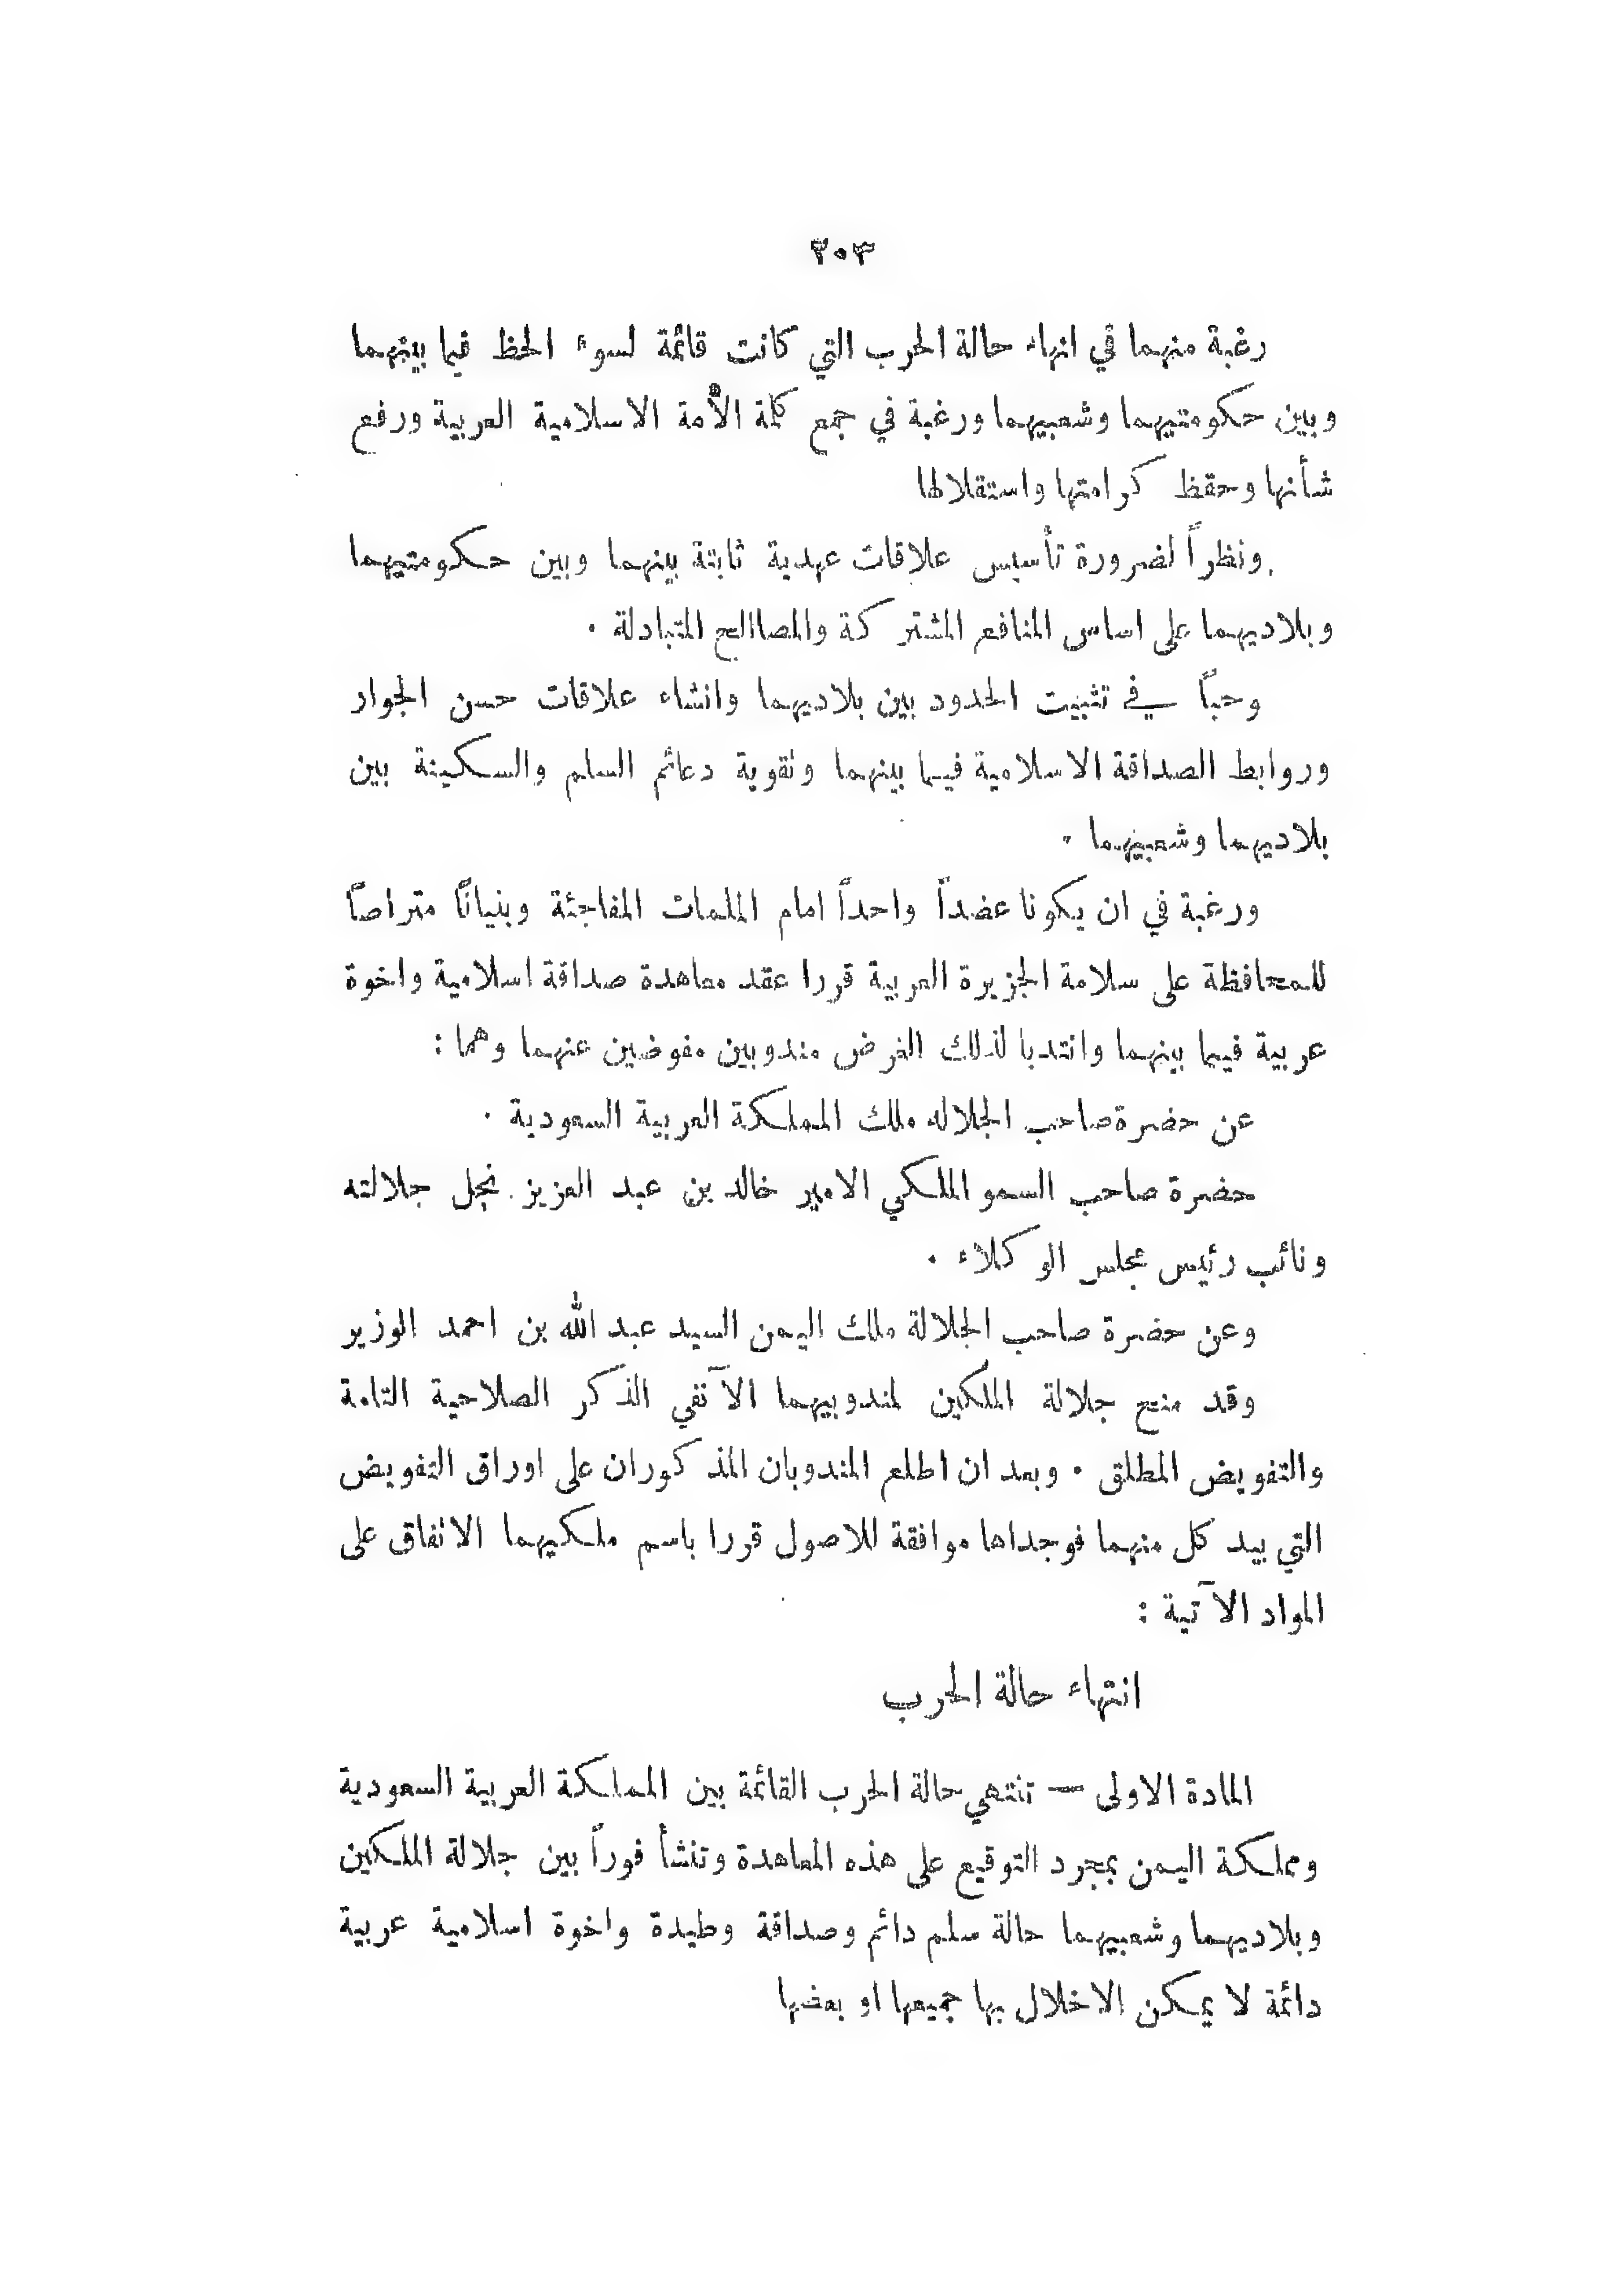 ٣٠٣
رغبة منهما في انهاء حالة الحرب التي كانت قائمة لسوء الحظ فيما بينهما
وبين حكومتيهما وشعبيهما ورغبة في جمع كلمة الأمة الاسلامية العربية ورفع
شأنها وحفظ كرامتها واستقلالها
ونظراً لضرورة تأسيس علاقات عهدية ثابتة بينهما وبين حكومتيهما
وبلاديهما على اساس المنافع المشتركة والمصاالح المتبادلة .
وحباً في تثبيت الحدود بين بلاديهما وانشاء علاقات حسن الجوار
وروابط الصداقة الاسلامية فيما بينهما وتقوية دعائم السلم والسكينة بين
بلاديهما وشعبيهما .
ورغبة في ان يكونا عضداً واحداً امام الملمات المفاجئة وبنياناً متراصاً
للمحافظة على سلامة الجزيرة العربية قررا عقد معاهدة صداقة اسلامية واخوة
عربية فيما بينهما وانتدبا لذلك الغرض مندوبين مفوضين عنهما وهما :
عن حضرة صاحب الجلاله ملك المملكة العربية السعودية .
حضرة صاحب السمو الملكي الامير خالد بن عبد العزيز نجل جلالته
ونائب رئيس مجلس الوكلاء .
وعن حضرة صاحب الجلالة ملك اليمن السيد عبد الله بن احمد الوزير
وقد منح جلالة الملكين لمندوبيهما الآنفي الذكر الصلاحية التامة
والتفويض المطلق . وبعد ان اطلع المندوبان المذكوران على اوراق التفويض
التي بيد كل منهما فوجداها موافقة للاصول قررا باسم ملكيهما الاتفاق على
المواد الآتية :
انتهاء حالة الحرب
المادة الاولى — تنتهي حالة الحرب القائمة بين المملكة العربية السعودية
ومملكة اليمن بمجرد التوقيع على هذه المعاهدة وتنشأ فوراً بين جلالة الملكين
وبلاديهما وشعبيهما حالة سلم دائم وصداقة وطيدة واخوة اسلامية عربية
دائمة لا يمكن الاخلال بها جميعها او بعضها